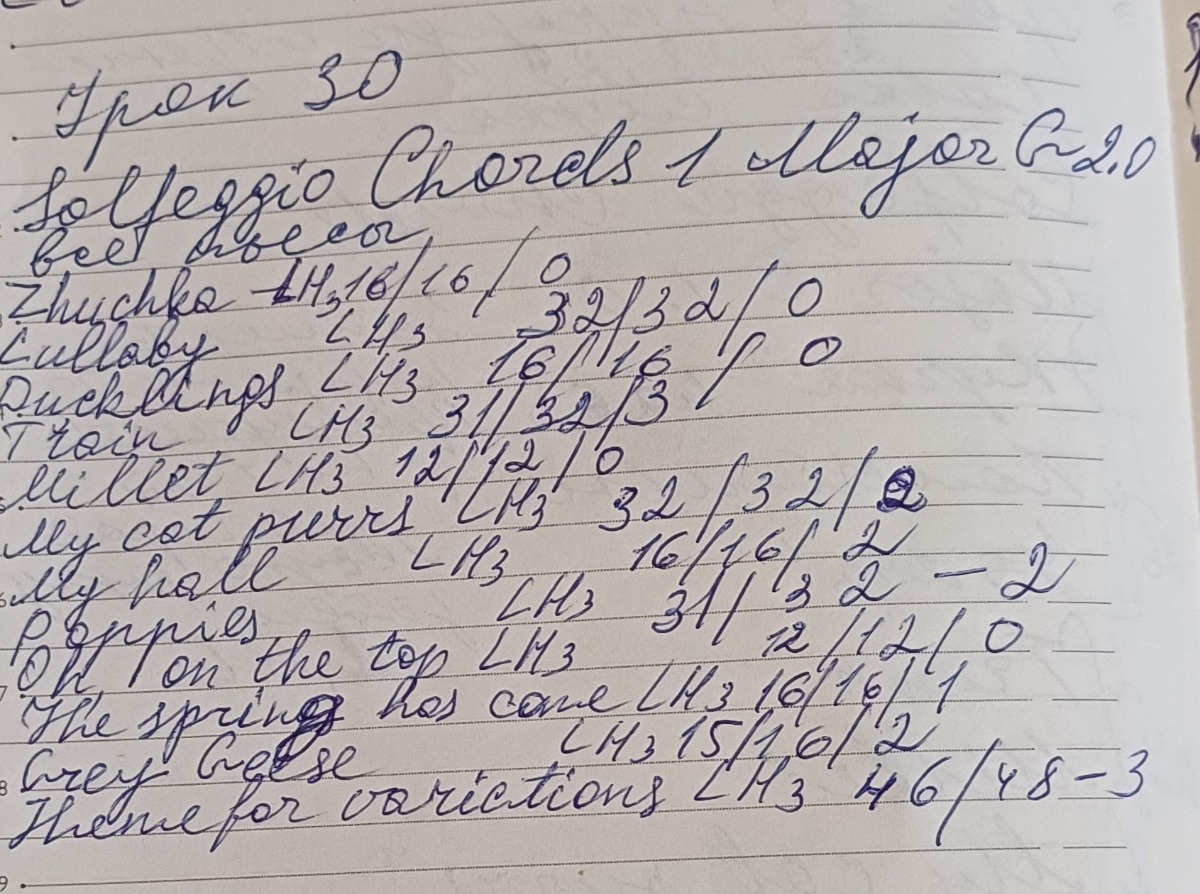 Урок 30
Solfeggio Chords 1 Major G 2.0
все пьесы
Zhuchka LH3 16/16/0
Lullaby LH3 32/32/0
Ducklings LH3 16/16/0
Train LH3 31/32/3
Millet LH3 12/12/0
My cat purrs LH3 32/32/2
My hall LH3 16/16/2
Poppies LH3 31/32 - 2
Oh, on the top LH3 12/12/0
The spring has come LH3 16/16/1
Grey Geese LH3 15/16/2
Theme for varictions LH3 46/48-3